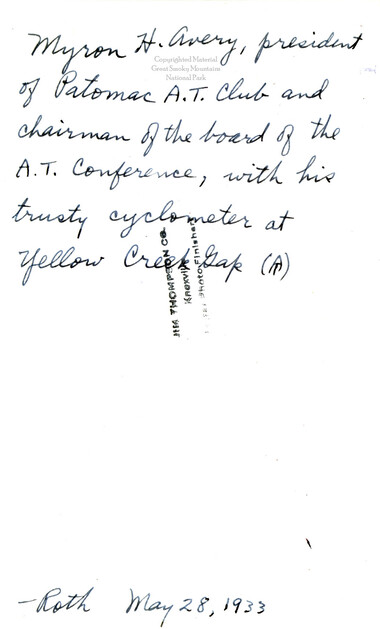 Myron H. Avery, president
Copyrighted Material
Great Smoky Mountains
National Park
of Patomac A.T. Club and
chairman of the board of the
A.T. Conference, with his
trusty cyclometer at
Yellow Creek Gap (A)
JIM THOMPSON CO.
Knoxville
Photo-Finishers
—Roth May 28, 1933